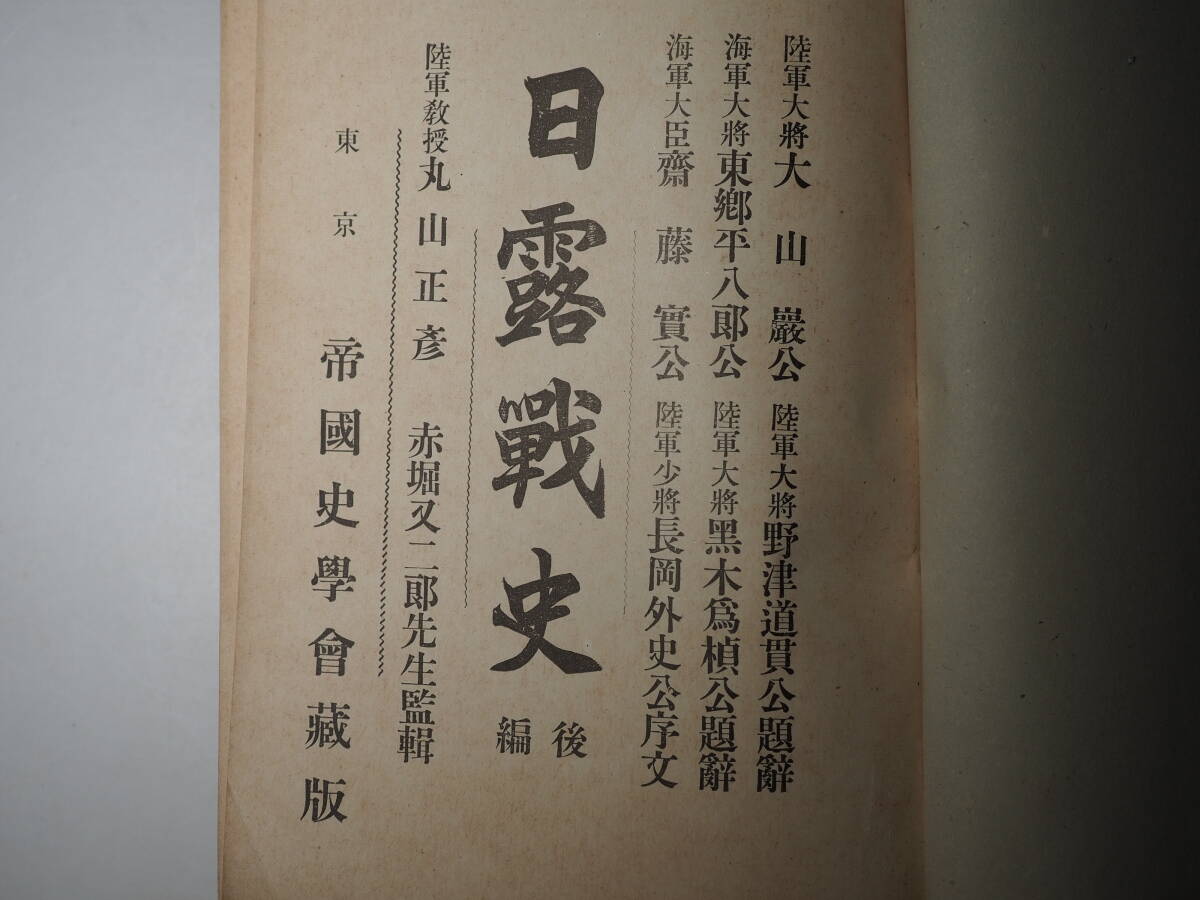 陸軍大將大山巖公 陸軍大將野津道貫公題辭
海軍大將東鄕平八郎公 陸軍大將黑木爲楨公題辭
海軍大臣齋藤實公 陸軍少將長岡外史公序文
日露戰史 後編
陸軍敎授丸山正彥 赤堀又二郎先生監輯
東京 帝國史學會藏版